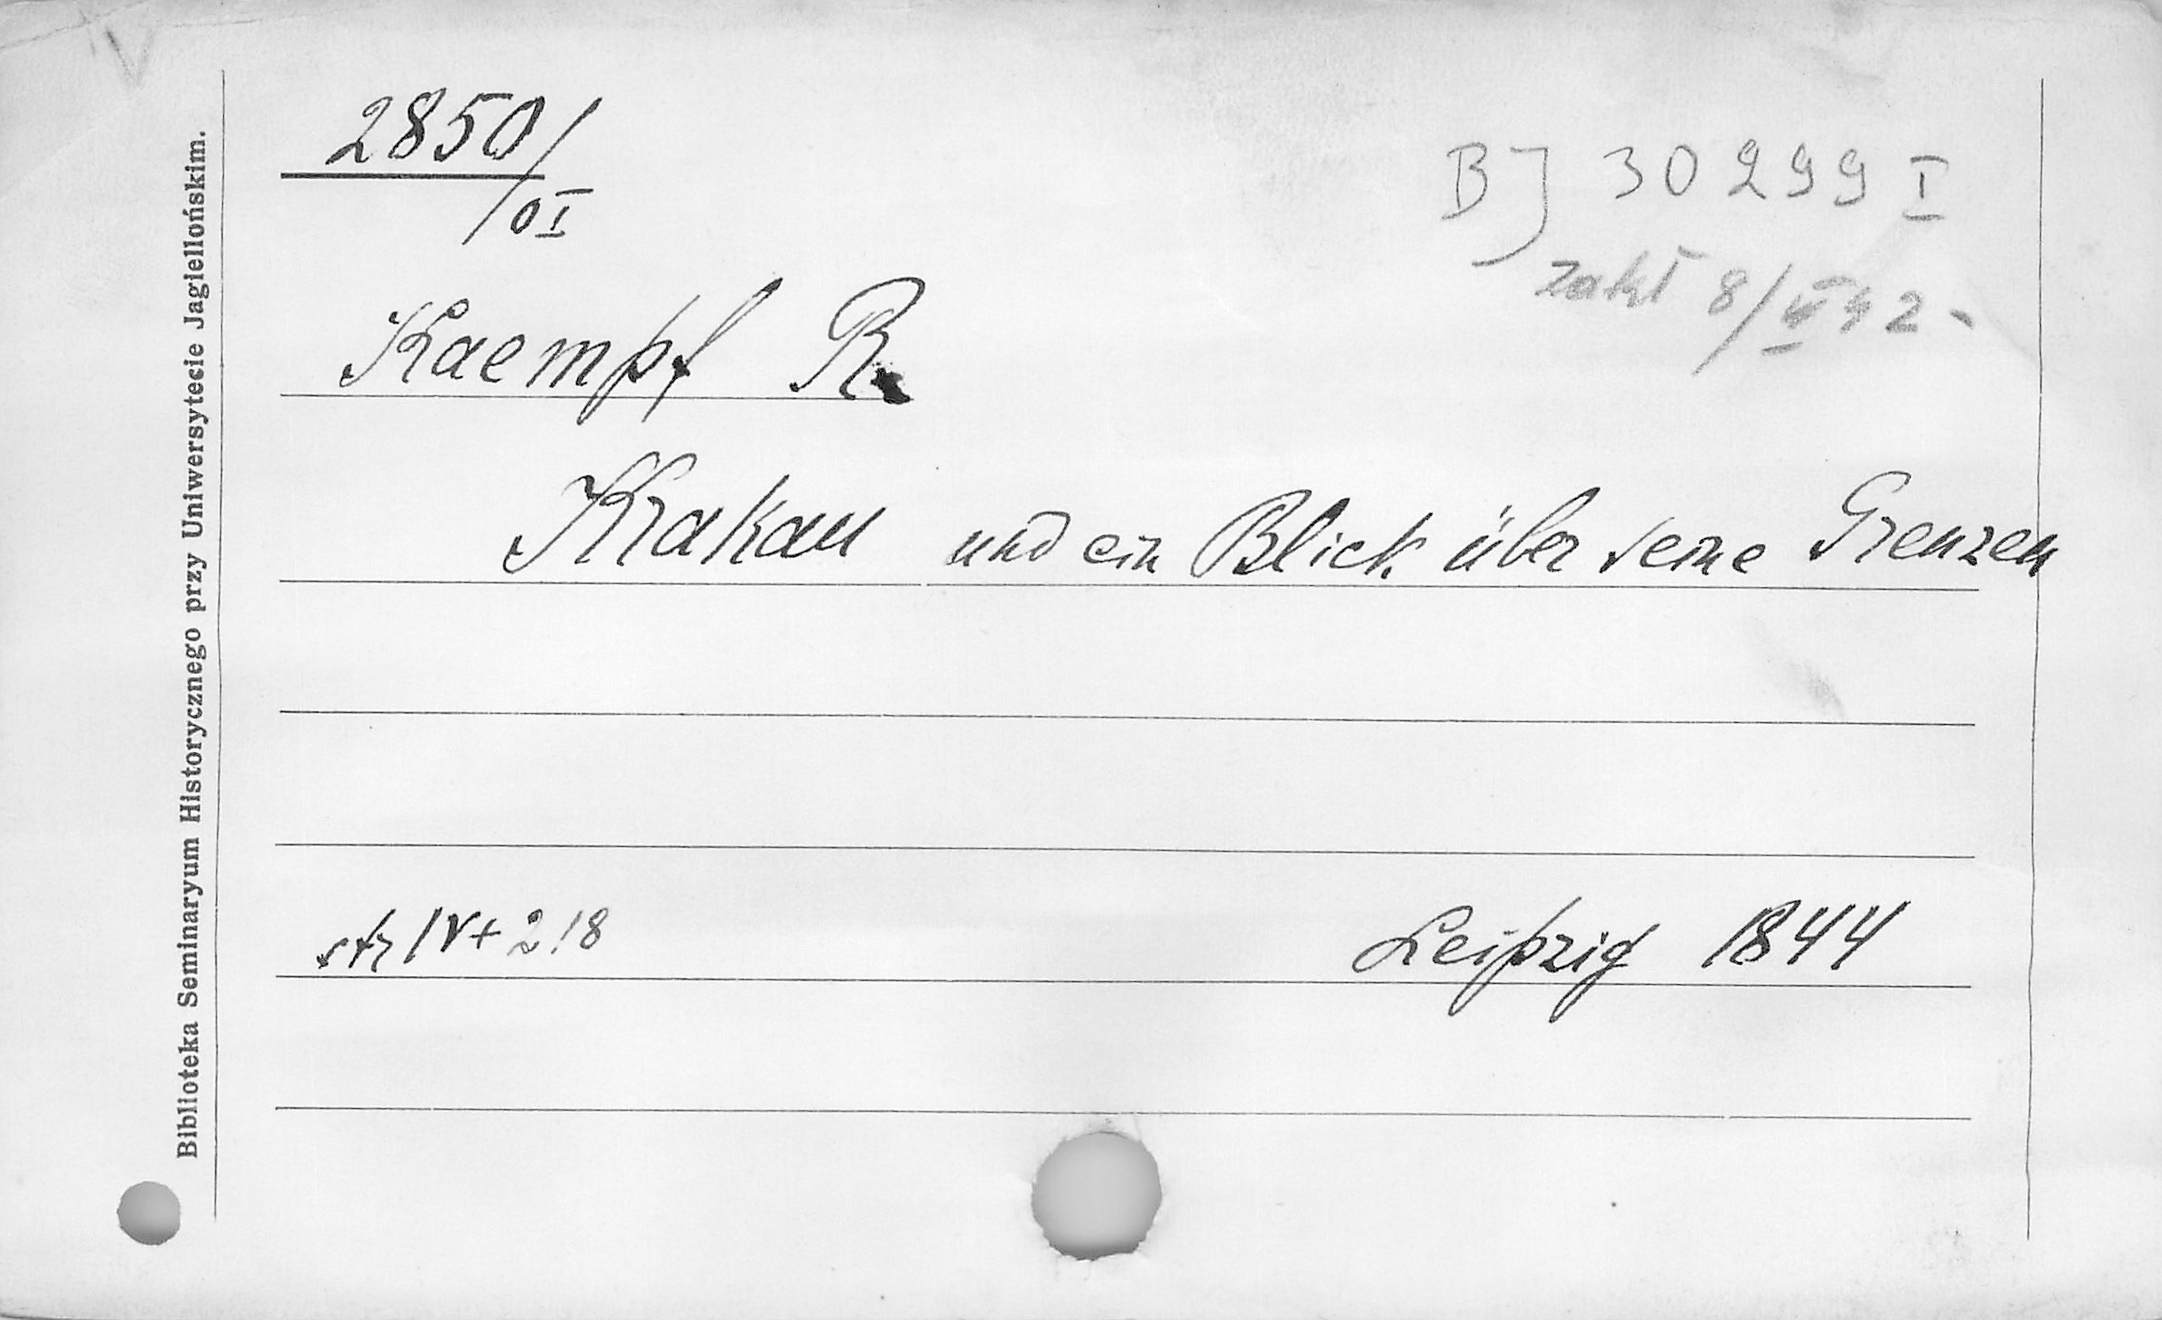 Biblioteka Seminaryum Historycznego przy Uniwersytecie Jagiellońskim.
2850/
0I
BJ 30299 I
Kaempf R.
Krakau und ein Blick über seine Grenzen
str IV + 218
Leipzig 1844